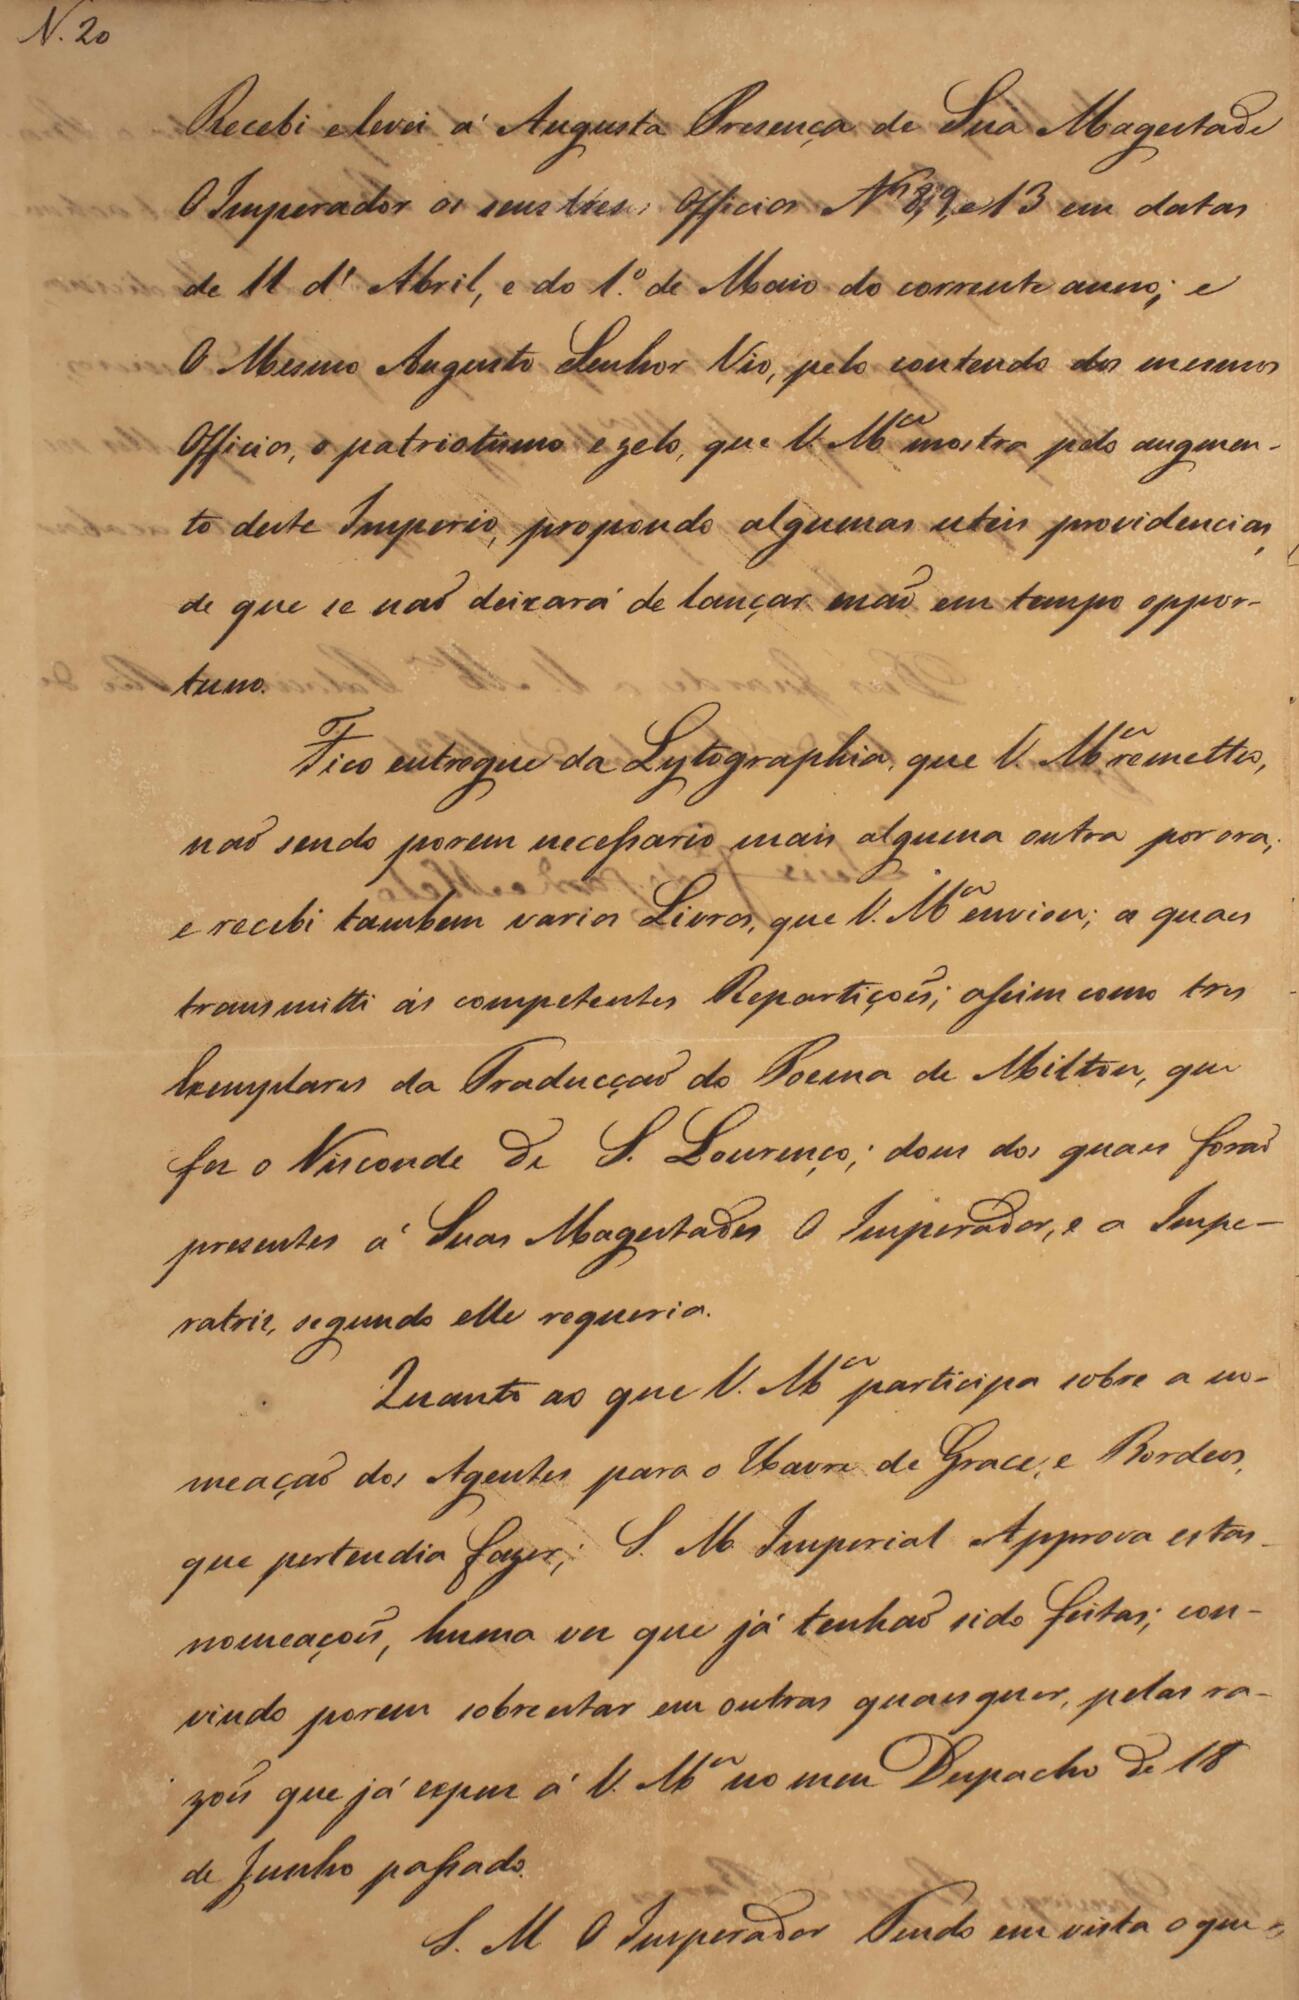 N. 20
Recebi e levei á Augusta Presença de Sua Magestade
O Imperador os seus tres Officios Nos 8, 9, e 13 em datas
de 11 d' Abril, e do 1.º de Maio do corrente anno; e
O Mesmo Augusto Senhor Vio, pelo contendo dos mesmos
Officios, o patriotismo e zelo, que V. Mce mostra pelo augmen-
to deste Imperio, propondo algumas uteis providencias,
de que se naõ deixará de lançar maõ em tempo oppor-
tuno.
Fico entregue da Lytographia, que V. Mce remetteo,
naõ sendo porem necessario mais alguma outra por ora;
e recebi tambem varios Livros, que V. Mce enviou; a quaes
transmitti ás competentes Repartiçoẽs; assim como tres
Exemplares da Traducçaõ do Poema de Milton, que
fez o Visconde de S. Lourenço; dous dos quaes foraõ
presentes á Suas Magestades O Imperador, e a Impe-
ratriz, segundo elle requeria.
Quanto ao que V. Mce participa sobre a no-
meaçaõ dos Agentes para o Havre de Grace, e Bordeos,
que pertendia fazer; S. M. Imperial Approva estas
nomeaçoẽs, huma vez que já tenhaõ sido feitas; con-
vindo porem sobreestar em outras quaesquer, pelas ra-
zoẽs que já expuz á V. Mce no meu Despacho de 18
de Junho passado.
S. M. O Imperador Tendo em vista o que